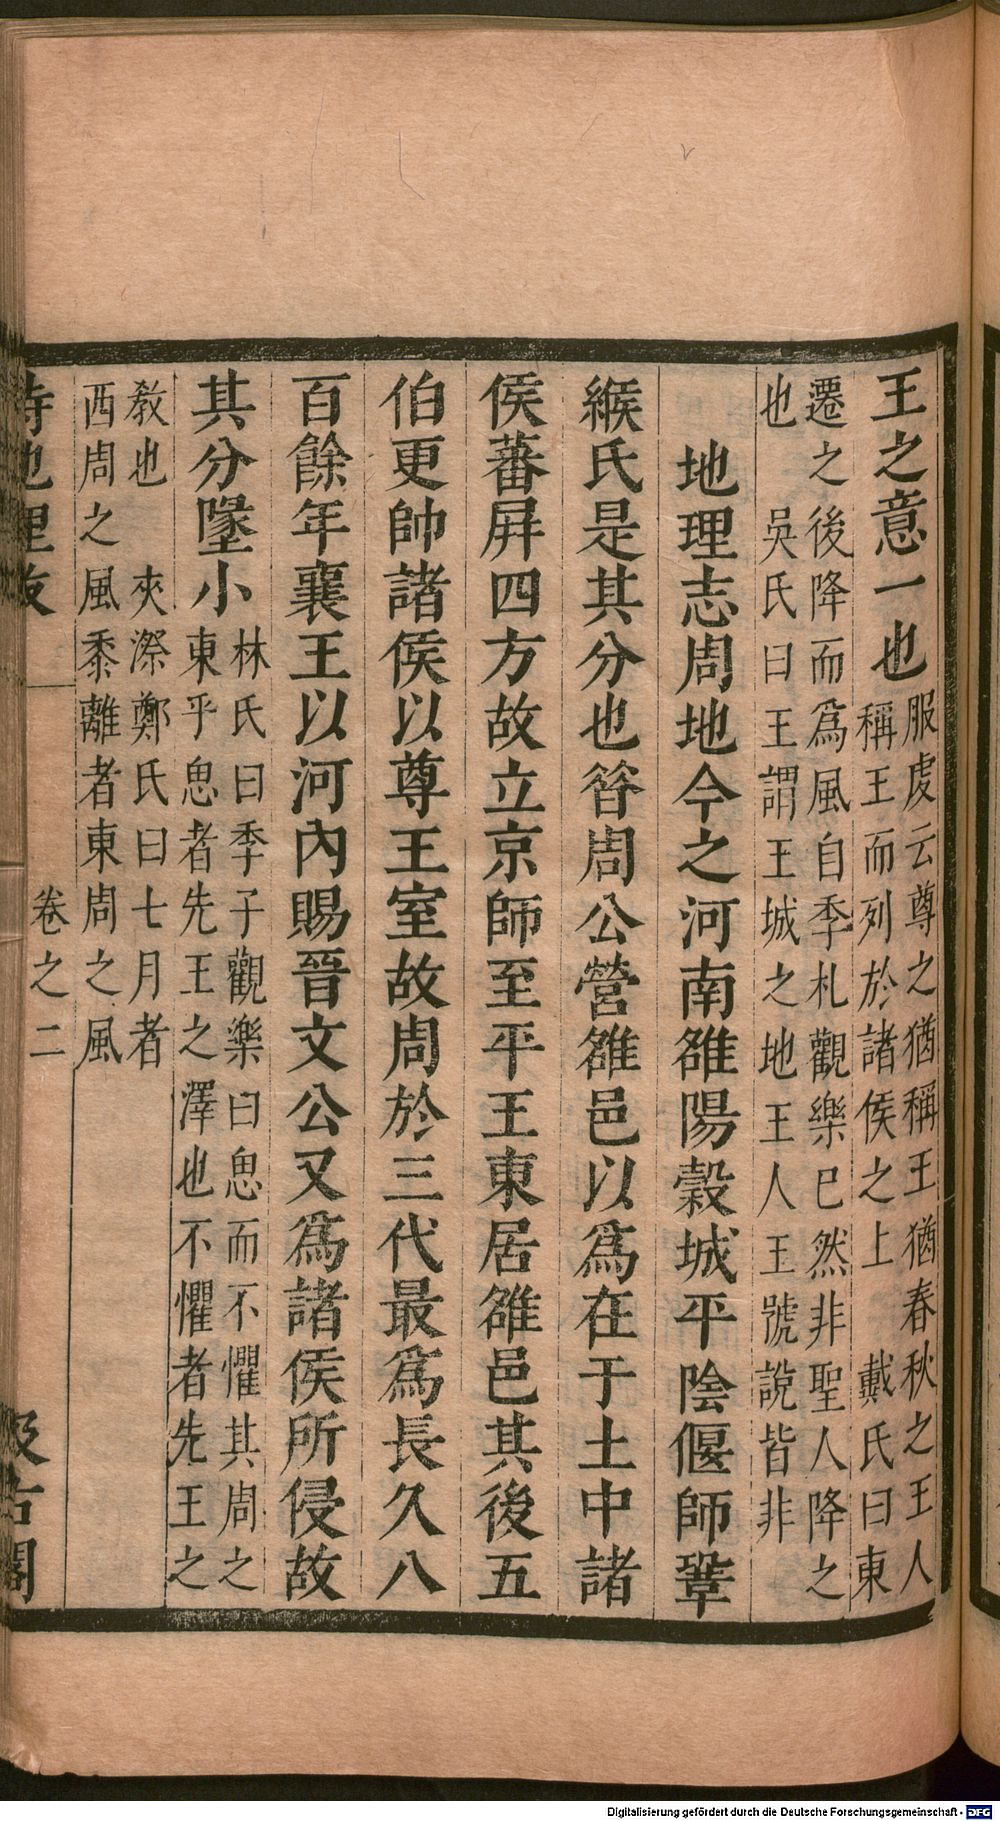 王之意一也服虔云尊之猶稱王猶春秋之王人
稱王而列於諸侯之上　戴氏曰東
遷之後降而爲風自季札觀樂已然非聖人降之
也　吳氏曰王謂王城之地王人王號說皆非
地理志周地今之河南雒陽穀城平陰偃師鞏
緱氏是其分也昝周公營雒邑以爲在于土中諸
侯蕃屛四方故立京師至平王東居雒邑其後五
伯更帥諸侯以尊王室故周於三代最爲長久八
百餘年襄王以河內賜晉文公又爲諸侯所侵故
其分墬小林氏曰季子觀樂曰思而不懼其周之
東乎思者先王之澤也不懼者先王之
敎也　夾漈鄭氏曰七月者
西周之風黍離者東周之風
詩地理攷
卷之二
汲古閣
Digitalisierung gefördert durch die Deutsche Forschungsgemeinschaft - DFG